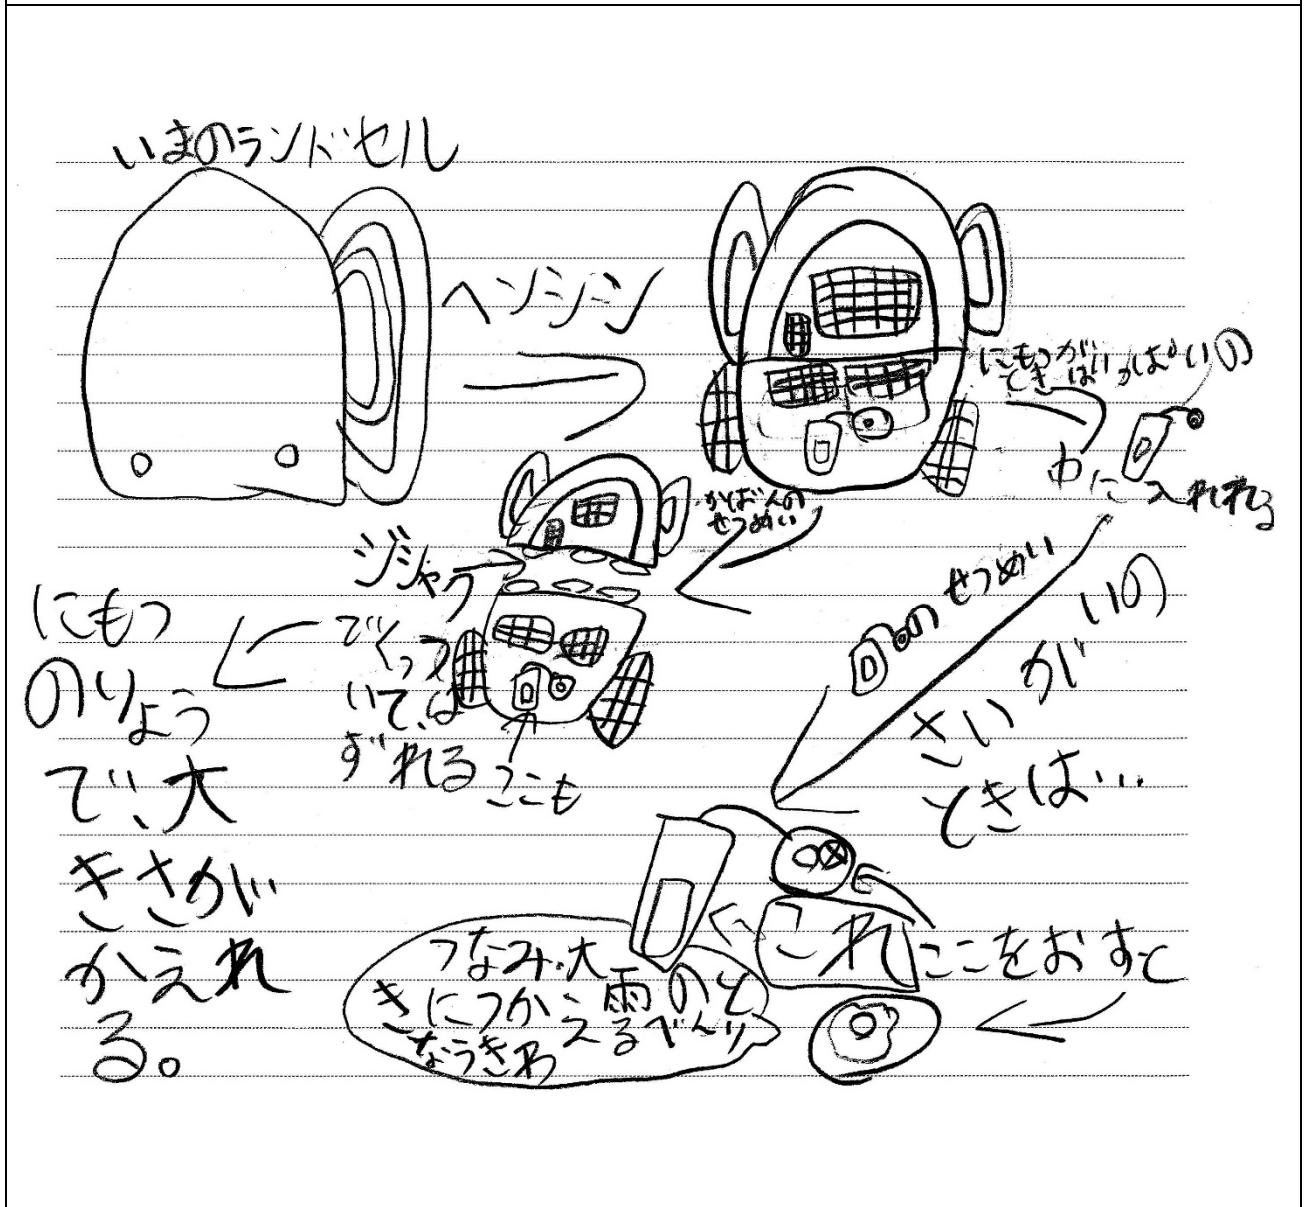 いまのランドセル
ヘンシーン
にもつがいっぱいの
ときは
中に入れれる
かばんの
せつめい
ジジャク
でくっつ
いて、は
ずれる
ここも
にもつ
のりょう
で、大
きさがい
かえれ
る。
のせつめい
さいがいの
ときは…
これ
ここをおすと
つなみ・大
雨のと
きにつかえ
るべんり
なうきわ